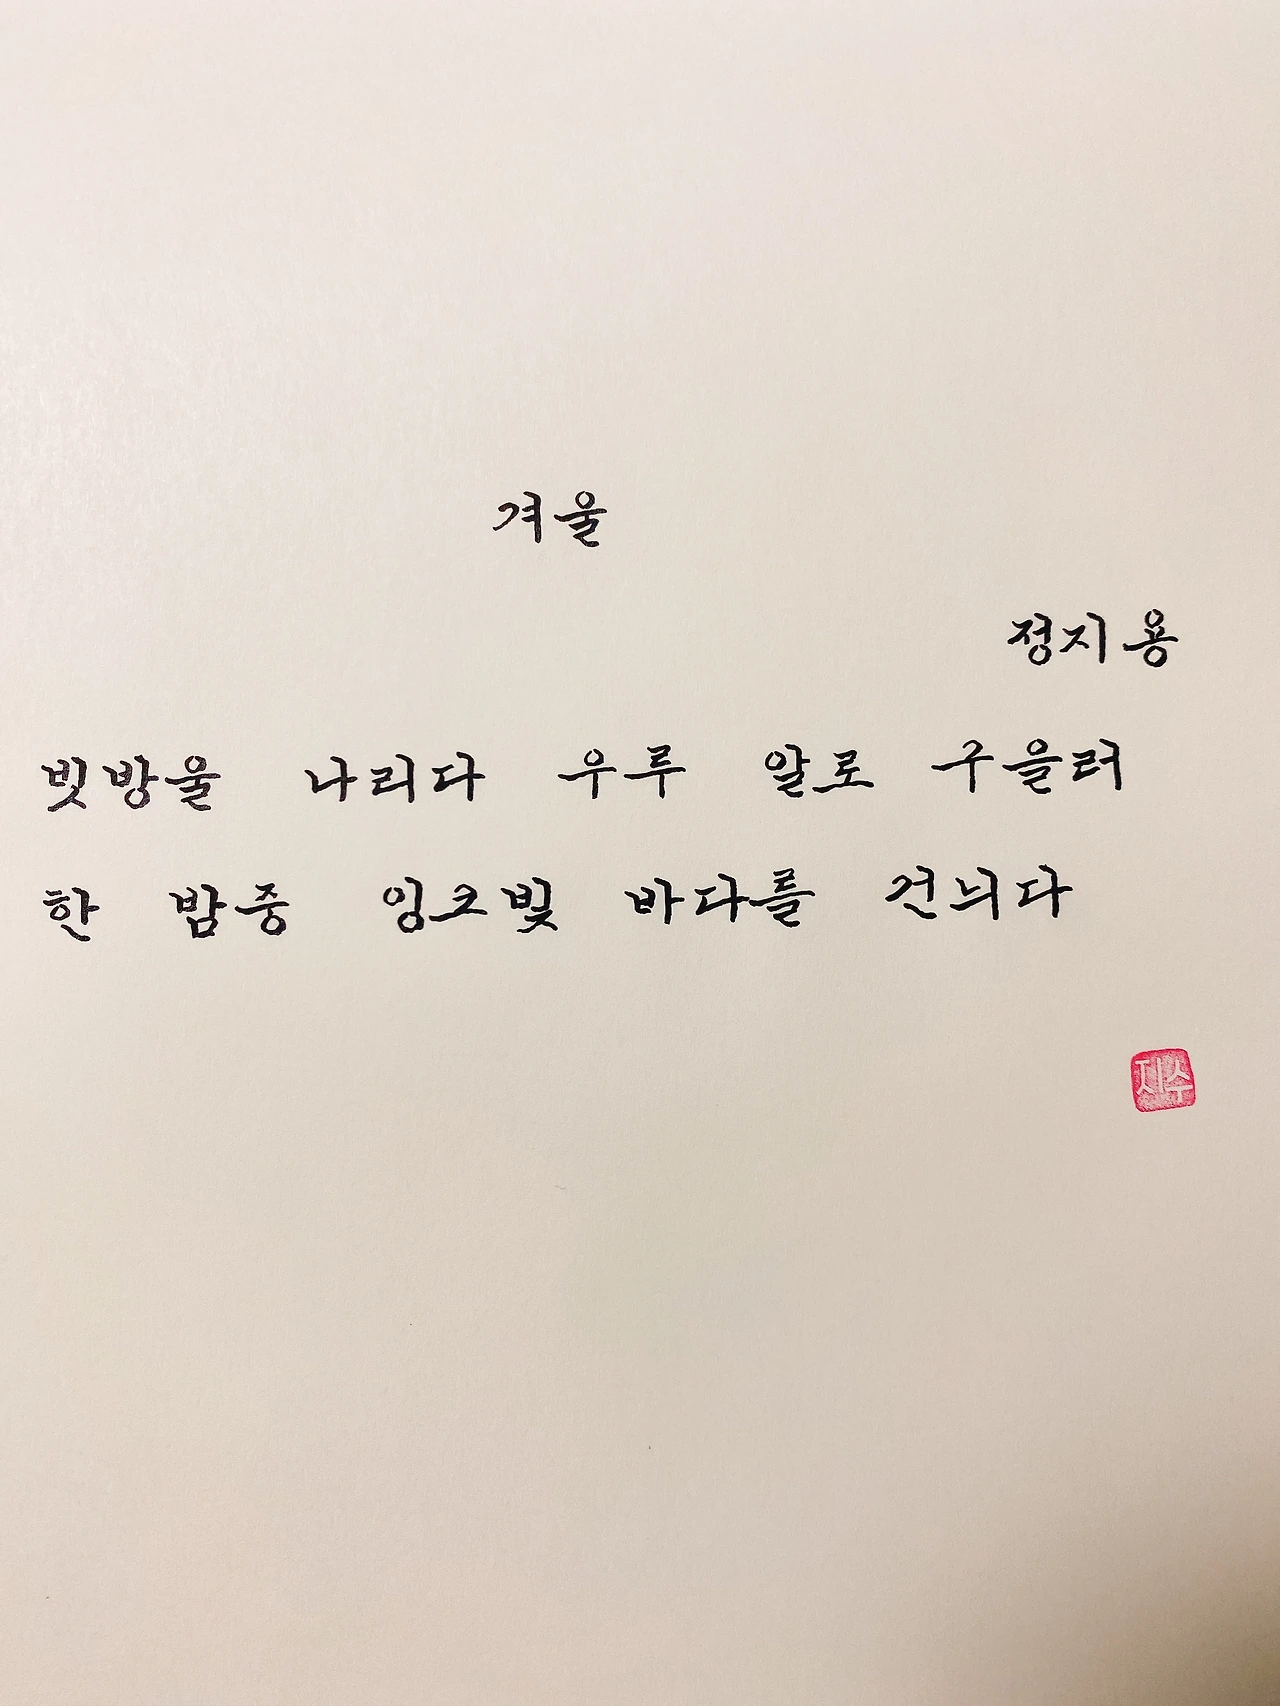 겨울
정지용
빗방울 나리다 우루 알로 구을러
한 밤중 잉크빛 바다를 건늬다
지수